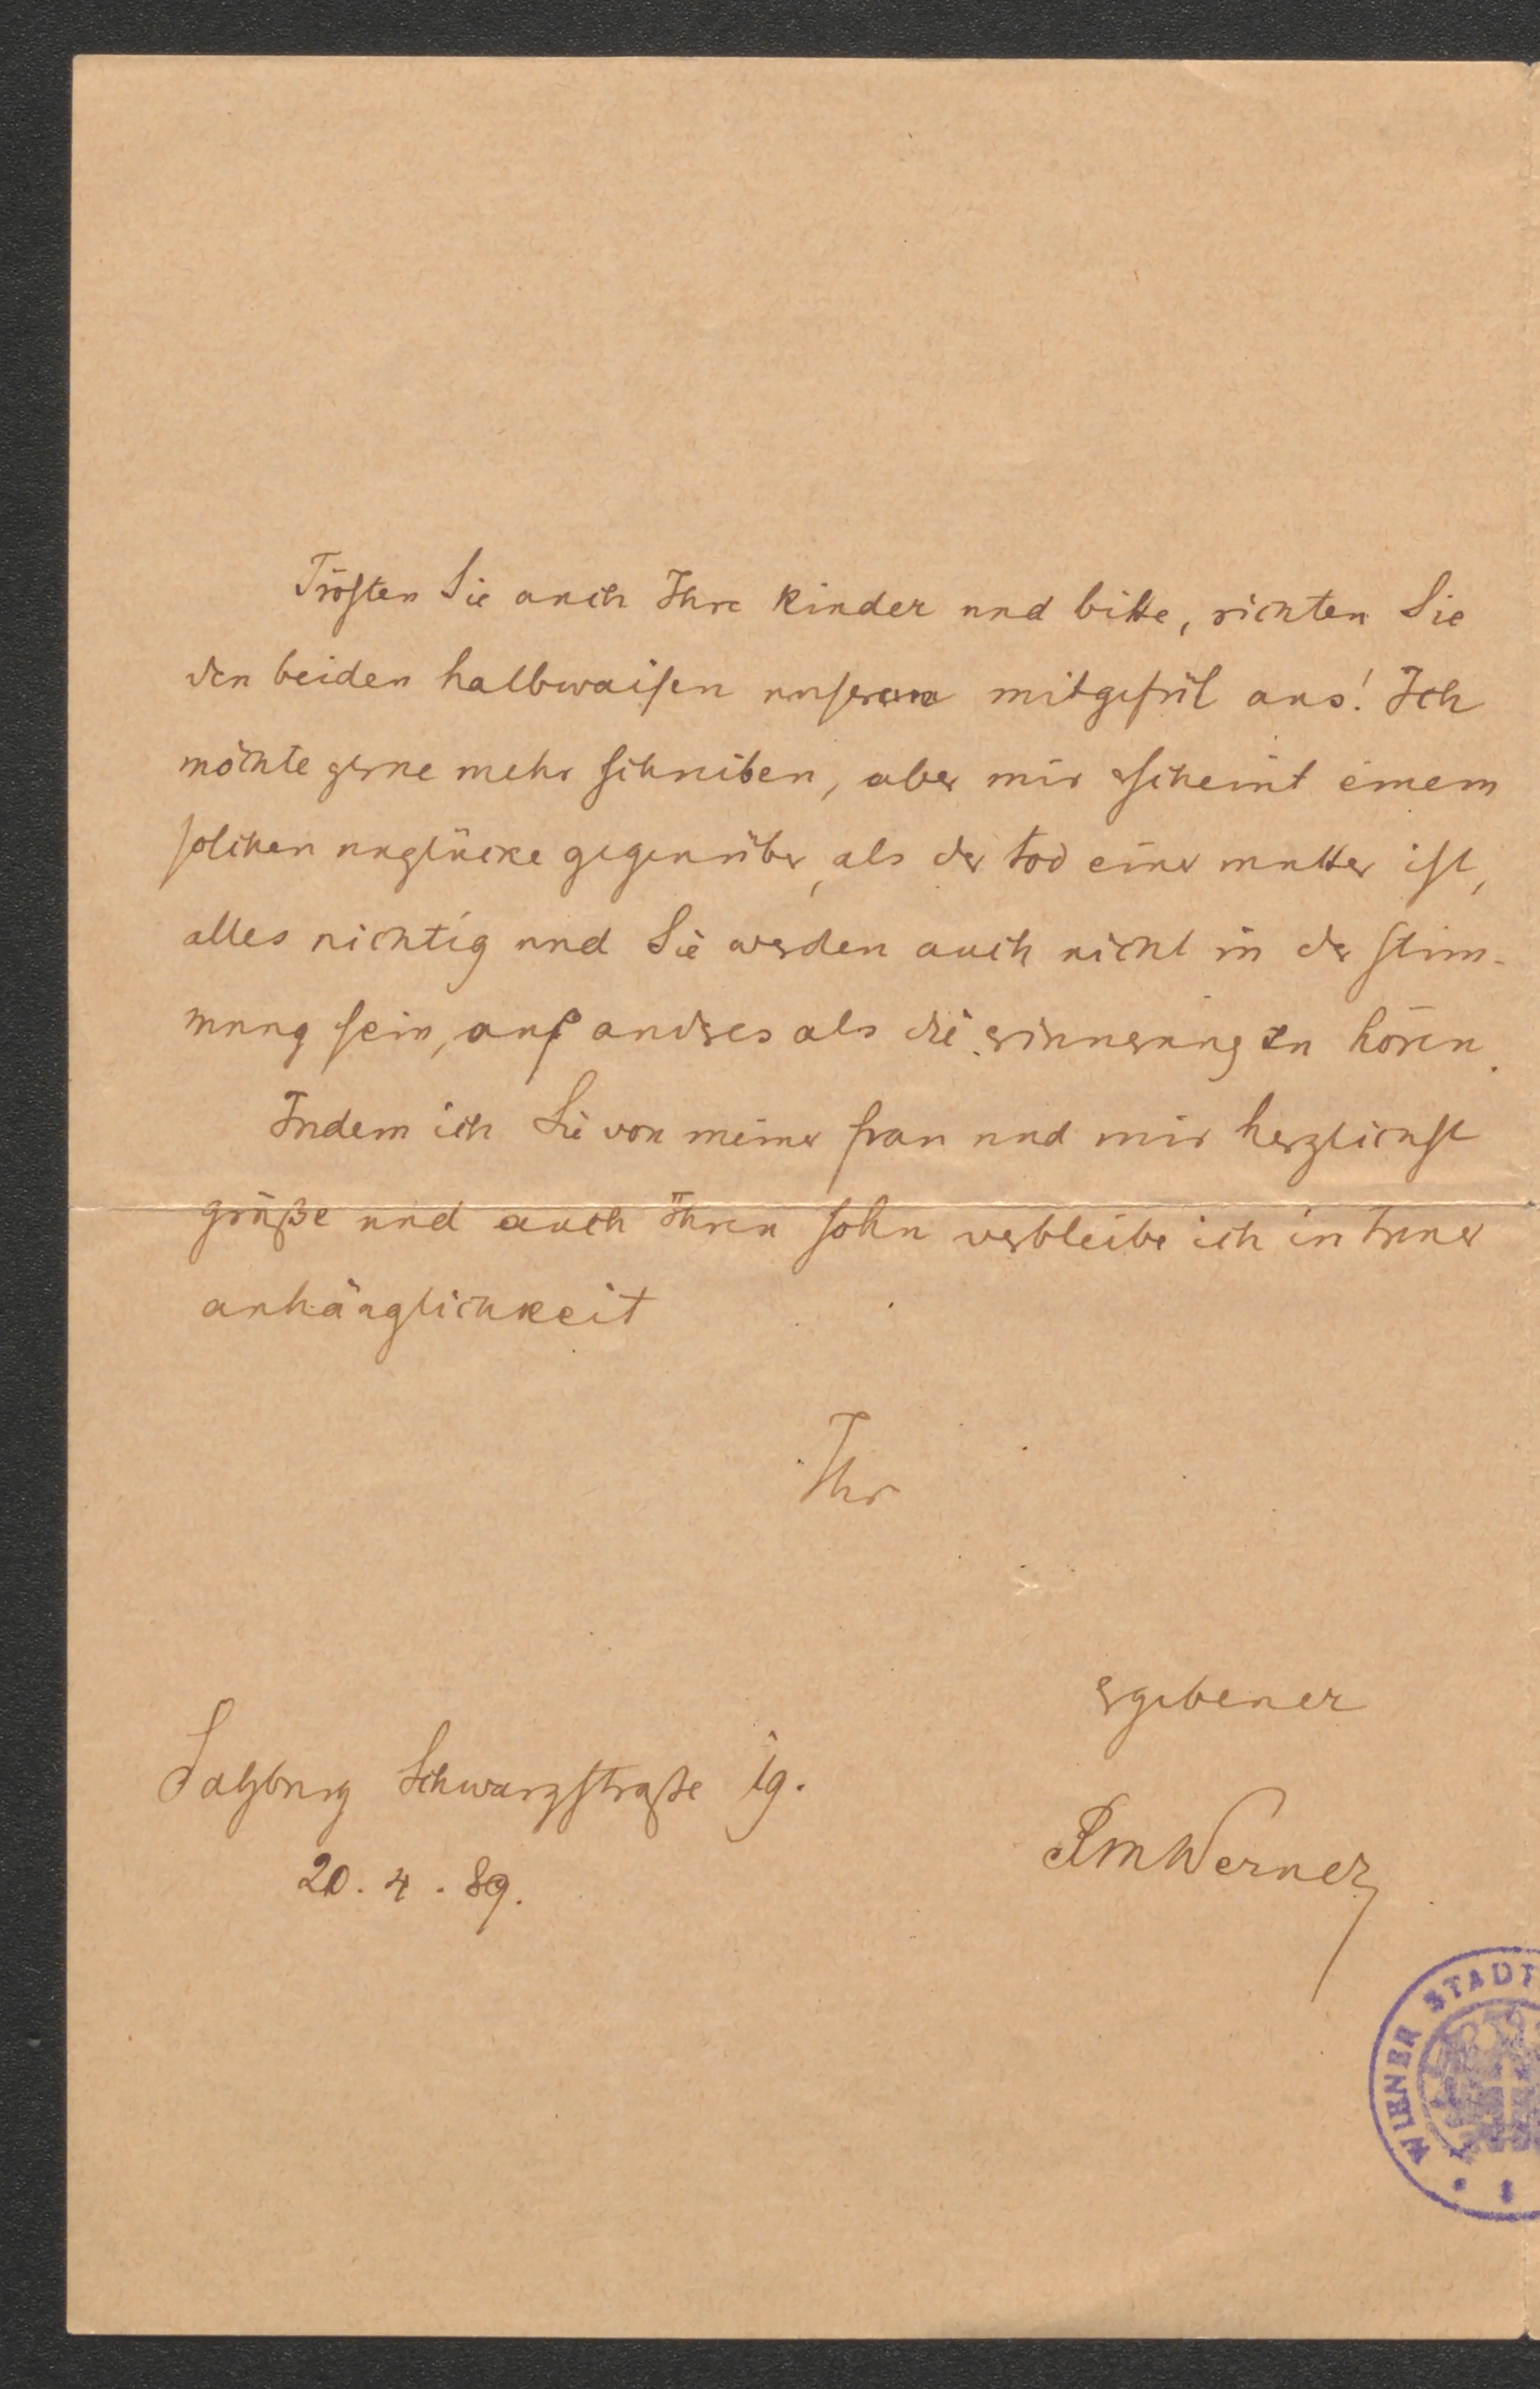 Trösten Sie auch Ihre kinder und bitte, richten Sie
den beiden halbwaisen unser mitgefül aus! Ich
möchte gerne mehr schreiben, aber mir erscheint einem
solchen unglücke gegenüber, als der tod einer mutter ist,
alles nichtig und Sie werden auch nicht in der stim-
mung sein, auf andres als die erinnerung zu hören.
Indem ich Sie von meiner frau und mir herzlichst
grüße und auch Ihren sohn verbleibe ich in treuer
anhänglichkeit
Ihr
ergebener
Salzburg Schwarzstraße 19.
RMWerner
20. 4. 89.
WIENER STADT